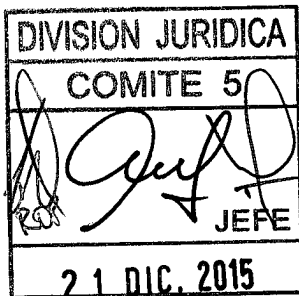 DIVISION JURIDICA
COMITE 5
JEFE
21 DIC. 2015